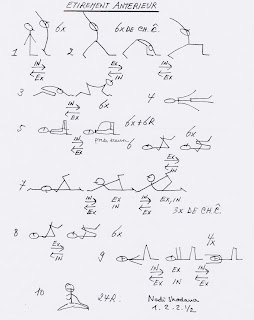 ETIREMENT ANTERIEUR
1 6x 2 6x DE CH. Ĉ.
IN EX
EX IN
3 IN EX 6x 4
5 6x+6R
6 IN EX 6x
7 EX IN EX, IN
IN EX
3x DE CH. Ĉ.
8 EX IN 6x
9 4x
EX EX EX
IN IN IN
10 24R. Nadi Shodana
1. 2. 2. 1/2